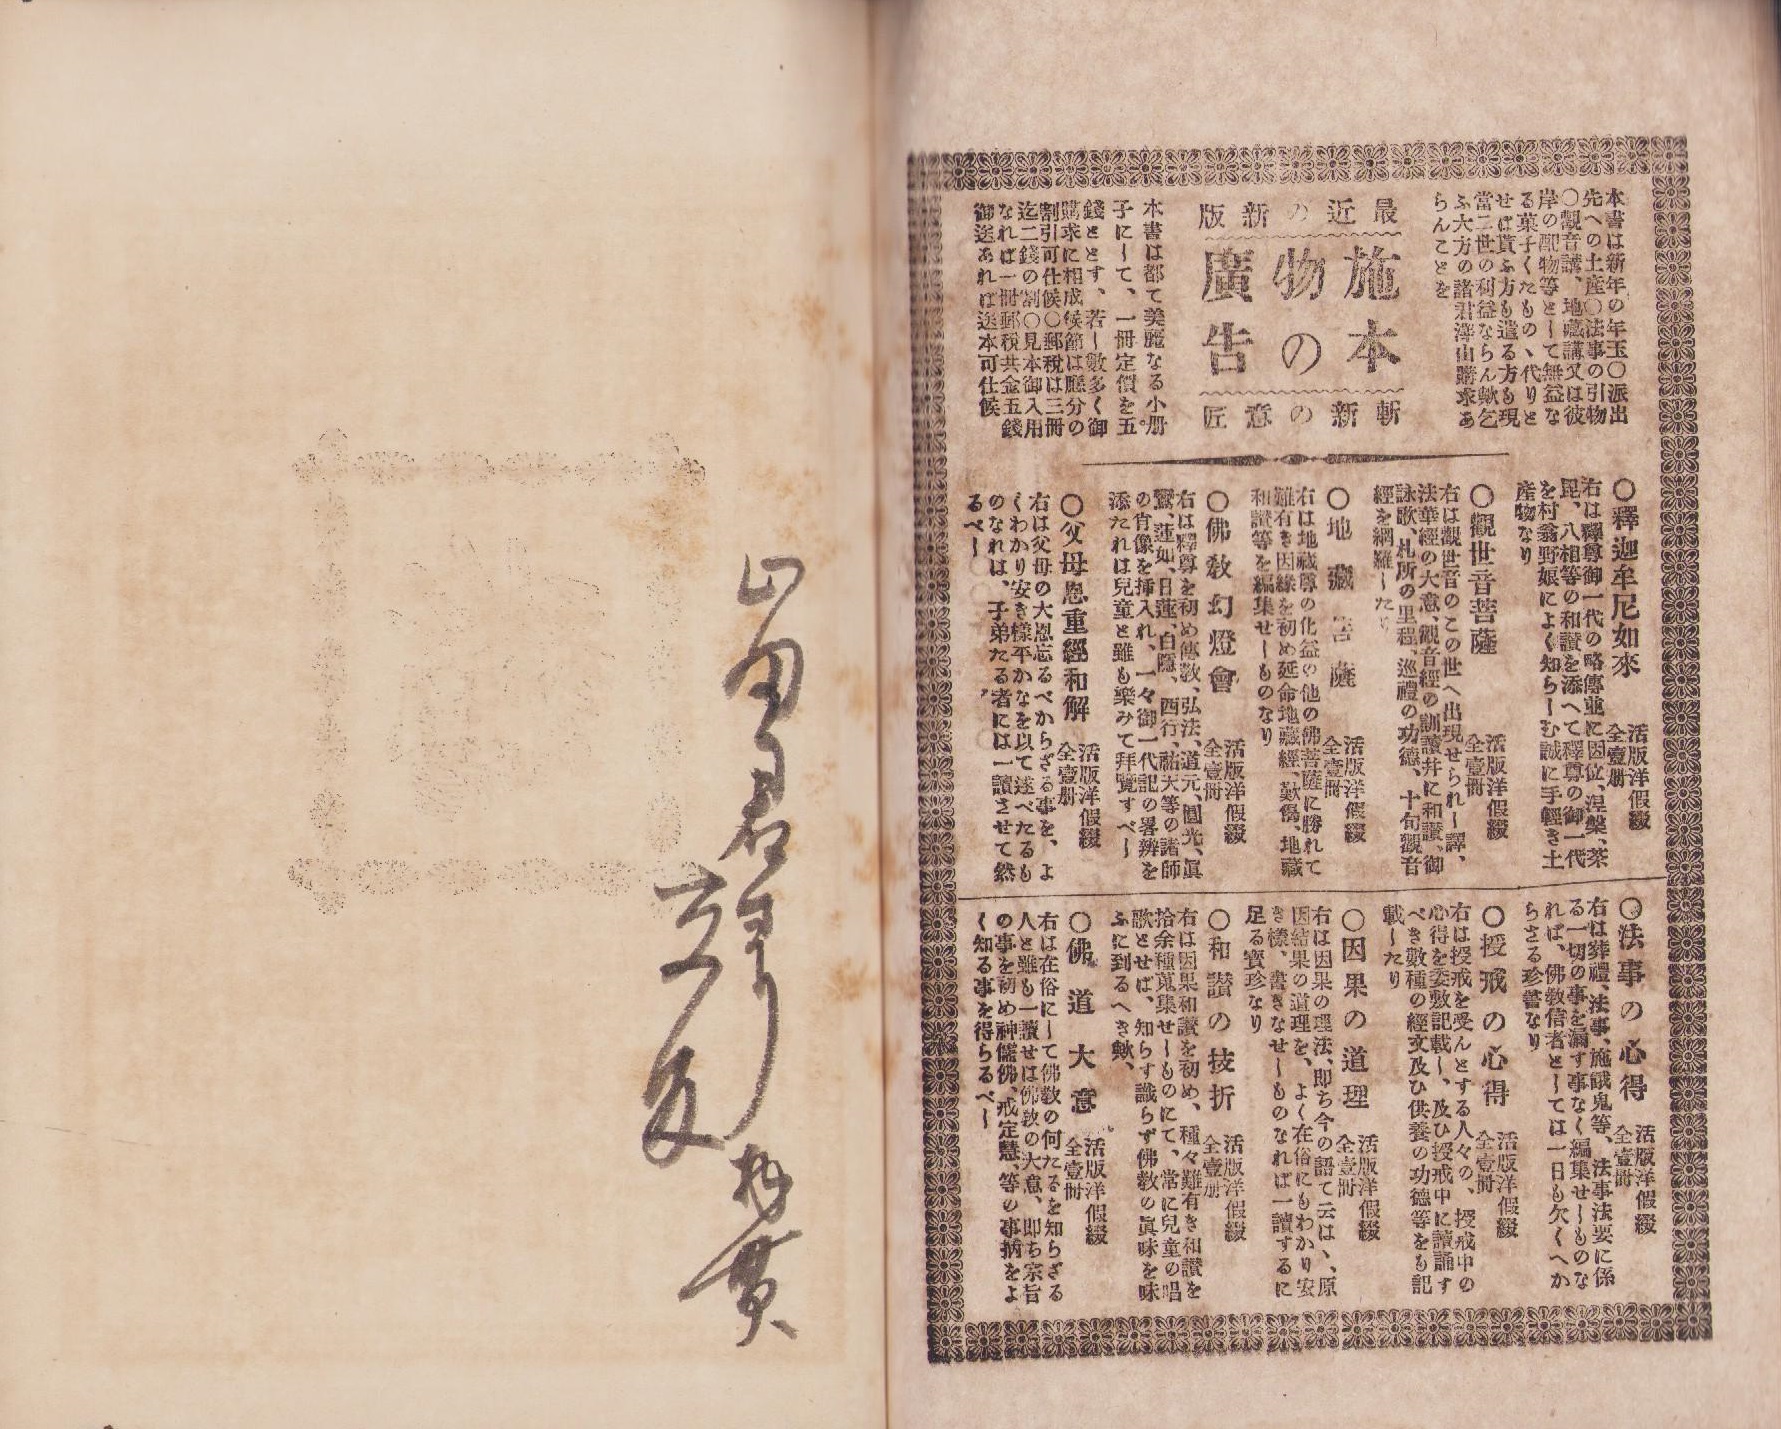 本書は新年の年玉〇派出
先への土産〇法事の引物
〇觀音講、地藏講又は彼
岸の配物等として無益な
る菓子くたもの、代りと
せば貰ふ方も遣る方も現
當二世の利益ならん歟乞
ふ六方の諸君澤山購求あ
らんことを
最近の新版
施本の
物廣告
斬新の意匠
本書は都て美麗なる小册
子にして、一冊定價を五
錢とす、若し數多く御
購求に相成候節は應分の
割引可仕候〇郵税は三冊
迄二錢の割〇見本御入用
なれば一冊郵税共金五錢
御送あれば送本可仕候
〇釋迦牟尼如來 活版洋假綴 全壹册
右は釋尊御一代の略傳並に因位、涅槃、荼
毘、八相等の和讃を添へて釋尊の御一代
を村翁野娘によく知らしむ誠に手輕き土
産物なり
〇觀世音菩薩 活版洋假綴 全壹冊
右は觀世音のこの世へ出現せられし譯、
法華經の大意、觀音經の訓讀并に和讃、御
詠歌、札所の里程、巡禮の功德、十句觀音
經を網羅したり
〇地藏菩薩 活版洋假綴 全壹冊
右は地藏尊の化益の他の佛菩薩に勝れて
難有き因緣を初め延命地藏經、歎偈、地藏
和讃等を編集せしものなり
〇佛敎幻燈會 活版洋假綴 全壹冊
右は釋尊を初め傳敎、弘法、道元、圓光、眞
鸞、蓮如、日蓮、白隱、西行、祐天等の諸師
の肖像を挿入れ、一々御一代記の畧辨を
添たれは兒童と雖も樂みて拜覽すべし
〇父母恩重經和解 活版洋假綴 全壹册
右は父母の大恩忘るべからざる事を、よ
くわかり安き樣平かなを以て述べたるも
のなれは、子弟たる者には一讀させて然
るべし
〇法事の心得 活版洋假綴 全壹冊
右は葬禮、法事、施餓鬼等、法事法要に係
る一切の事を漏す事なく編集せしものな
れば、佛敎信者としては一日も欠くへか
らさる珍書なり
〇授戒の心得 活版洋假綴 全壹冊
右は授戒を受んとする人々の、授戒中の
心得を委敷記載し、及ひ授戒中に讀誦す
べき數種の經文及ひ供養の功德等をも記
載したり
〇因果の道理 活版洋假綴 全壹冊
右は因果の理法、即ち今の語て云は、、原
因結果の道理を、よく在俗にもわかり安
き樣、書きなせしものなれば一讀するに
足る寳珍なり
〇和讃の技折 活版洋假綴 全壹册
右は因果和讃を初め、種々難有き和讃を
拾余種蒐集せしものにて、常に兒童の唱
歌とせば、知らず識らず佛敎の眞味を味
ふに到るへき歟、
〇佛道大意 活版洋假綴 全壹冊
右は在俗にして佛敎の何たるを知らざる
人と雖も一讀せは佛敎の大意、即ち宗旨
の事を初め神儒佛、戒定慧、等の事柄をよ
く知る事を得らるべし
山田君ヨリ